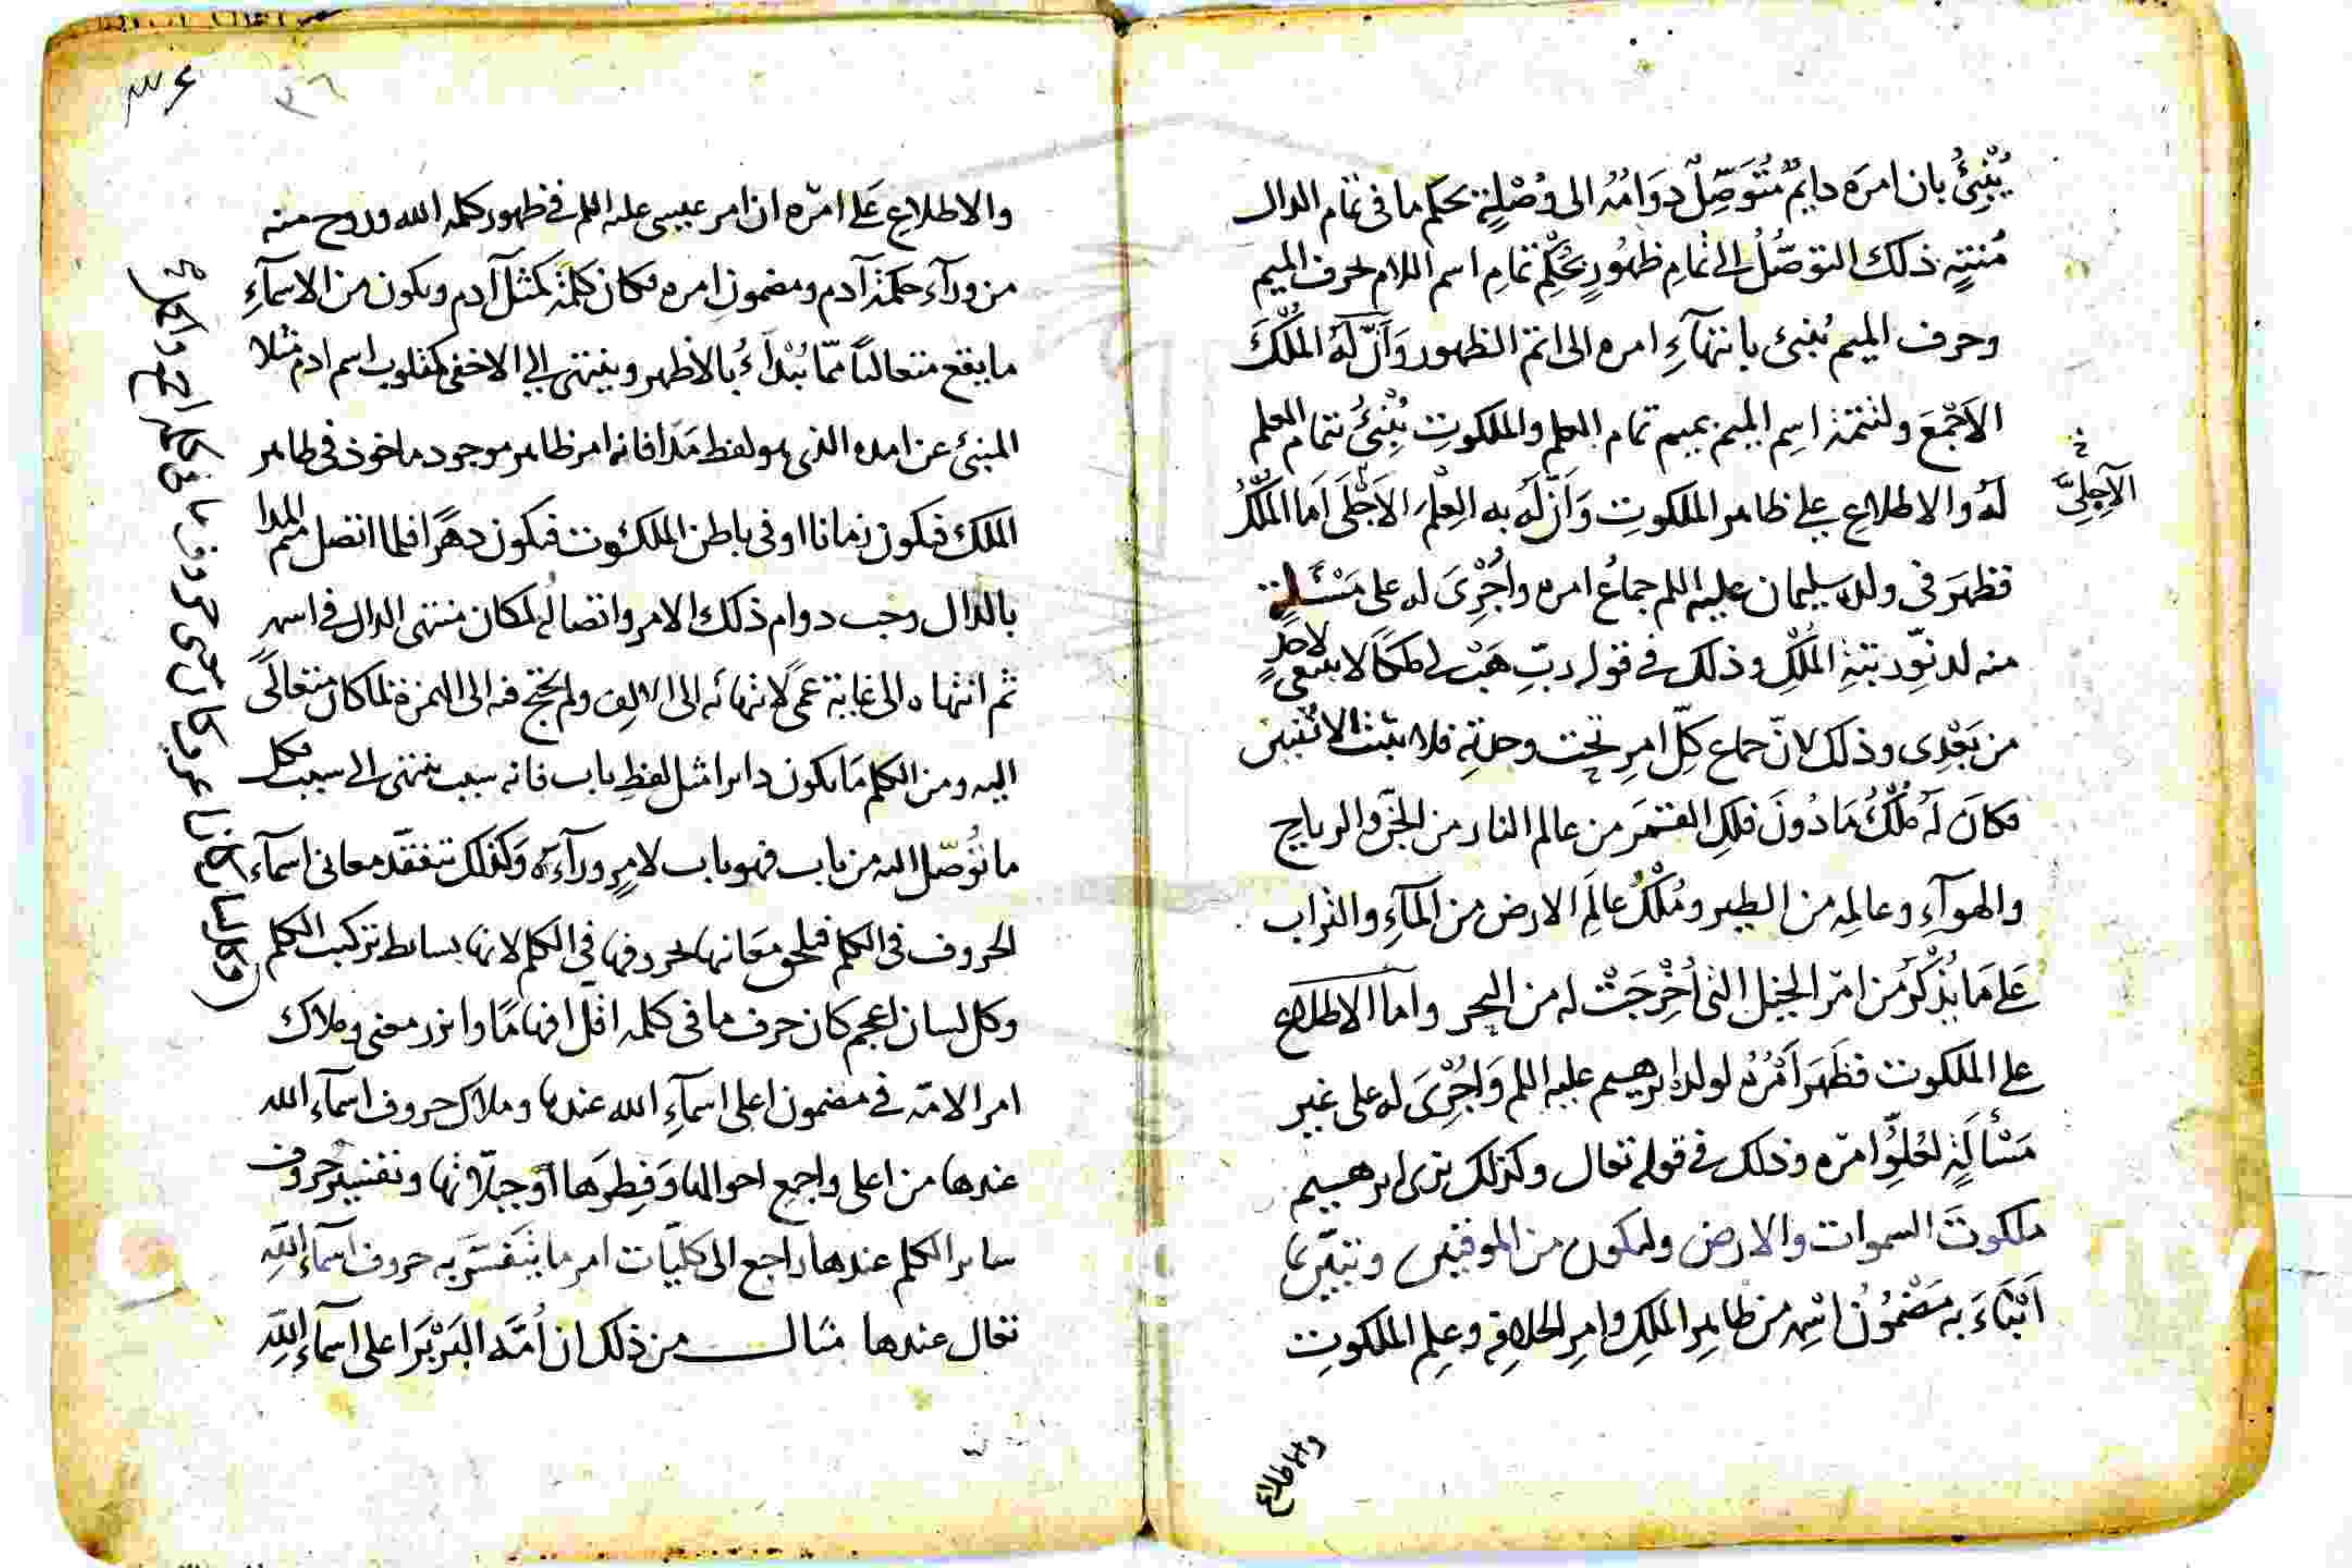 يُنْبِئُ بان امرَه دايمٌ مُتَوَصِّلٌ دَوَامُهُ الى وُصْلِةٍ بحكم ما فى تمام الدال
مُنتهٍ ذلك التوصُّلُ الى تمامِ ظهُورٍ بحُكمِ تمامِ اسم اللام بحرف الميم
وحرف الميم يُنبئ بانتهآءِ امره الى اتم الظهور وَأنّ لَهُ المُلْكَ
الاَجْمَعَ ولتتمة اسِم الميم بميم تمام العلم والملكوتِ يُنْبِئُ بتمام العلم
لَهُ والاطلاع على ظاهر الملكوتِ وَاَنّ لَهُ به العِلْمَ الاَجْلَى اَما المُلْكُ
الاَجليَّ
فظهَرَ فى ولده سليمان عليه اللم جماعُ امره واُجْرِىَ له على مَسْئلةٍ
منه لدنيّوريّةِ المُلْكِ وذلك فى قوله ربِّ هَبْ لى ملكًا لا ينبغى لاحدٍ
من بَعْدِى وذلك لانّ جماع كلّ امرٍ تحت وحدتِه فلا يثبت لاثنين
فكانَ لَهُ مُلْكُ مَا دُونَ فلكِ القمَرِ من عالم النار من الجنّ والرياح
والهوآءِ وعالمِه من الطير ومُلْكُ عالَمِ الارض من المآءِ والتراب
عَلى مَا يُذْكَرُ من امْر الخيل التى اُخْرِجَتْ له من البحر واما الاطلاع
على الملكوت فظَهَرَ اَمْرُهُ لولده ابرهيم عليه اللم وَاُجْرِىَ له على غير
مَسْألَةٍ لعُلوِّ امْره وذلك فى قوله تعالى وكذلك نرى ابرهيم
ملكوتَ السموات والارض وليكون من الموقنين وتبيّن بما
اَنْبَاءَ به مَضْمُونُ اسْمِه من ظاهِر الملكِ وامرِ الخلافِة وعلِم الملكوتِ
والاطلاع
٣٦
والاطلاع عَلى امْره ان امر عيسى عليه اللم فى ظهور كلمة الله وروح منه
من ورآء حكمة آدم ومضمون امره فكان كلمةً كمثل آدم ويكون من الاسمآءِ
ما يقع متعاليًا ممّا يُبْدَاءُ بالاظهر وينتهى الى الاخفى كمقلوب اسم ادم مثلا
المنبئ عن امده الذى هو لفظ مَدَا فانه امر ظاهر موجود ماخوذ فى ظاهر
الملك فيكون زمانا او فى باطن الملكوت فيكون دهرًا فلما اتصل ميم المدا
بالدال وجب دوام ذلك الامر واتصالُه لمكان منتهى الدال فى اسمه
ثم انتهاه الى غاية عَمىً لانتهائه الى الالف ولم يحتج فيه الى الهمزة لما كان متعاليًا
اليه ومن الكلم مَا يكون دايرا مثل لفظِ باب فانه سبب ينتهى الى سبب فكل
ما تُوُصّل اليه من باب فهو باب لامرٍ ورآءَه وَكذلك تتفقّد معانى اسمآء
الحروف فى الكلم فيلحق مَعَانيها بحروفها فى الكلم لانها بسائط تركيب الكلم
وكل لسان اعجم كان حرف ما فى كلمه اقل افهامًا وانزر معنى وملاك
امر الامّة فى مضمون اعلى اسمآءِ الله عندها وملاك حروف اسمآء الله
عندها من اعلى واجمع احوالها وَفِطرَها اوجبلّاتها وتفسير حروف
ساير الكلم عندها راجع الى كليّات امر ما يتفسّر به حروف اسمآءِ اللهِ
تعالى عندها مثال من ذلك ان اُمّة البَرْبَر اعلى اسمآء اللهِ